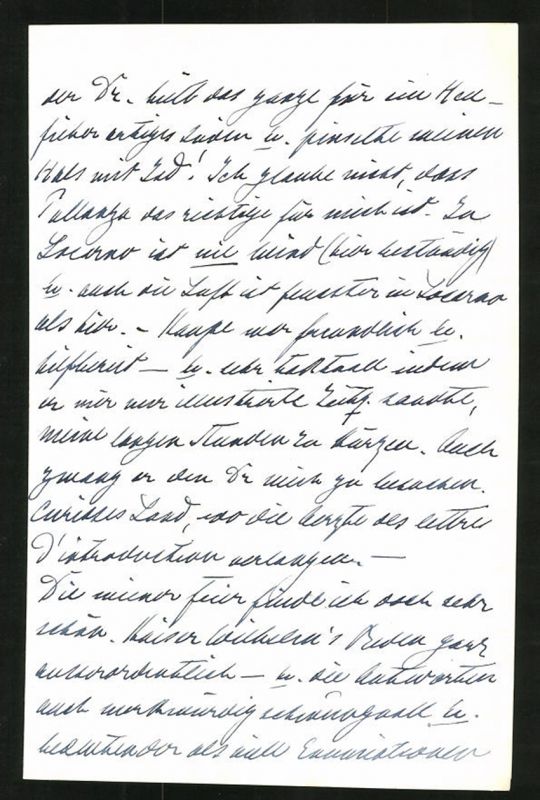 der Dr. hielt das ganze für ein Heu-
fieber artiges Leiden u. pinselte meinen
Hals mit Jod! Ich glaube nicht, dass
Pallanza das richtige für mich ist. In
Locarno ist nie Wind (hier beständig)
u. auch die Luft ist feuchter in Locarno
als hier. - war freundlich u.
hilfbereit — u. sehr taktvoll indem
er mir nur illustrierte Zeitg. sandte,
meine langen Stunden zu kürzen. Auch
zwang er den Dr mich zu besuchen.
Curioses Land, wo die Aerzte des lettres
d'introduction verlangen. —
Die wiener feier finde ich doch sehr
schön. Kaiser Wilhelm's Reden ganz
ausserordentlich — u. die Antworten
auch merkwürdig schwungvoll u.
bedeutender als viele Enunciationen